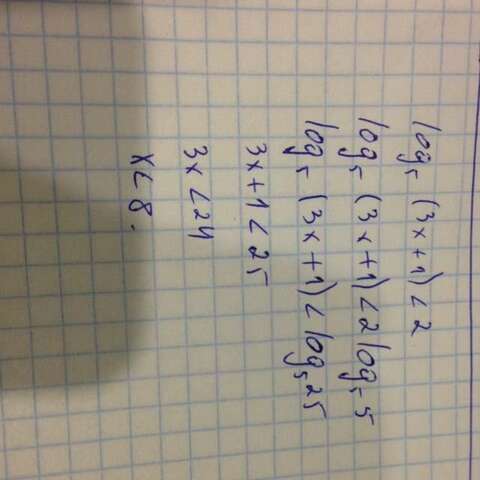 log₅ (3x+1) < 2
log₅ (3x+1) < 2 log₅ 5
log₅ (3x+1) < log₅ 25
3x+1 < 25
3x < 24
x < 8.